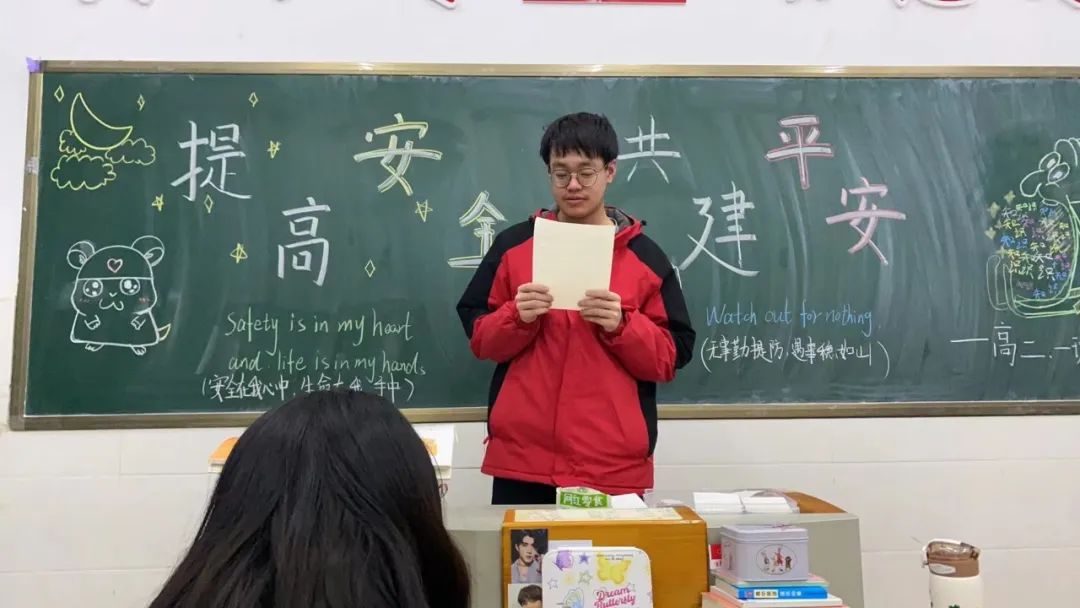 提高安全共建平安
Safety is in my heart
and life is in my hands.
(安全在我心中,生命在我手中)
Watch out for nothing.
(无事勤提防,遇事稳如山)
一高二.一
网红零食
Dream
Butterfly